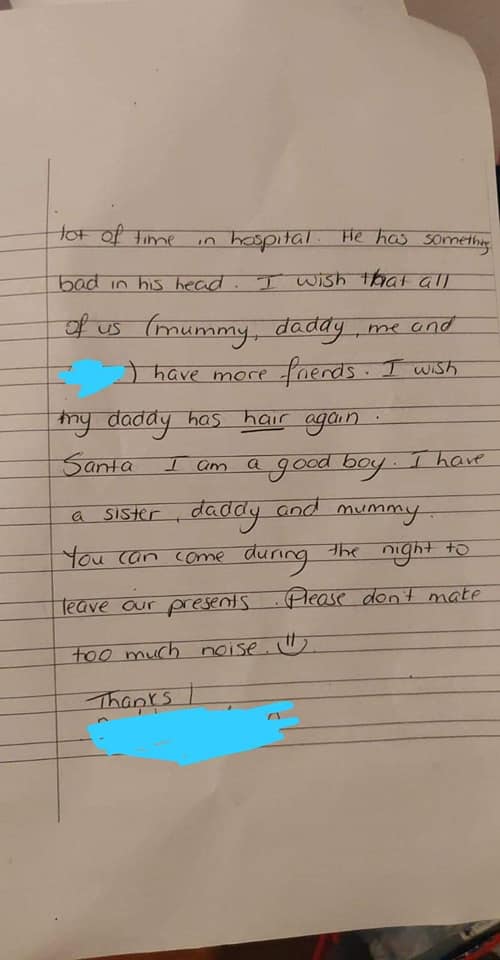 lot of time in hospital. He has something
bad in his head. I wish that all
of us (mummy, daddy, me and
) have more friends. I wish
my daddy has hair again.
Santa I am a good boy. I have
a sister, daddy and mummy.
You can come during the night to
leave our presents. Please don't make
too much noise. =)
Thanks!